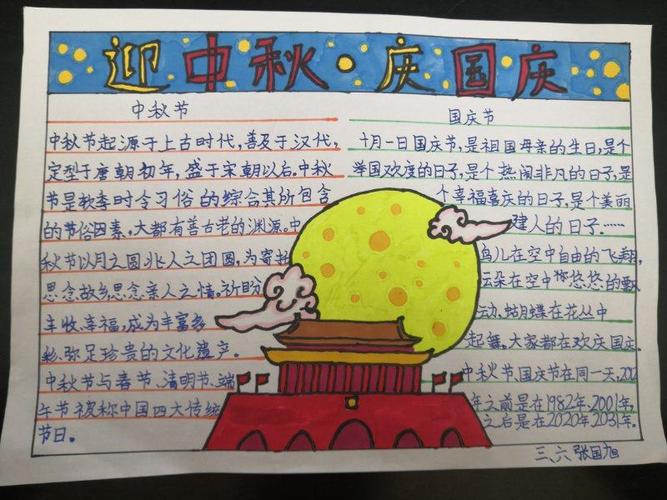 迎中秋·庆国庆
中秋节
中秋节起源于上古时代,普及于汉代,
定型于唐朝初年,盛于宋朝以后。中秋
节是秋季时令习俗的综合其所包含
的节俗因素,大都有着古老的渊源。中
秋节以月之圆兆人之团圆,为寄托
思念故乡,思念亲人之情。祈盼
丰收、幸福,成为丰富多
彩、弥足珍贵的文化遗产。
中秋节与春节、清明节、端
午节被称中国四大传统
节日。
国庆节
十月一日国庆节,是祖国母亲的生日,是个
举国欢度的日子,是个热闹非凡的日子,是
个幸福喜庆的日子,是个美丽
建人的日子……
鸟儿在空中自由的飞翔,
云朵在空中悠悠的飘
动,蝴蝶在花丛中
起舞。大家都在欢庆国庆。
中秋节、国庆节在同一天,202
年之前是在1982年、2001年,
之后是在2020年2031年。
三、六 张国旭